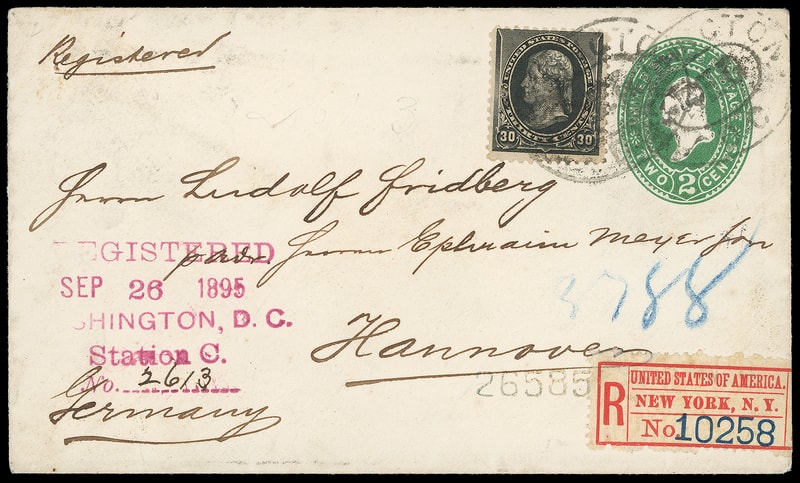 Registered
UNITED STATES POSTAGE
30 THIRTY CENTS 30
UNITED STATES POSTAGE
TWO 2 CENTS
Herrn Ludolf Fridberg
Herrn Ephraim Meyer Son
Hannover
Germany
REGISTERED
SEP 26 1895
SHINGTON, D. C.
Station C.
No. 2613
3788
26585
R
UNITED STATES OF AMERICA.
NEW YORK, N. Y.
No. 10258